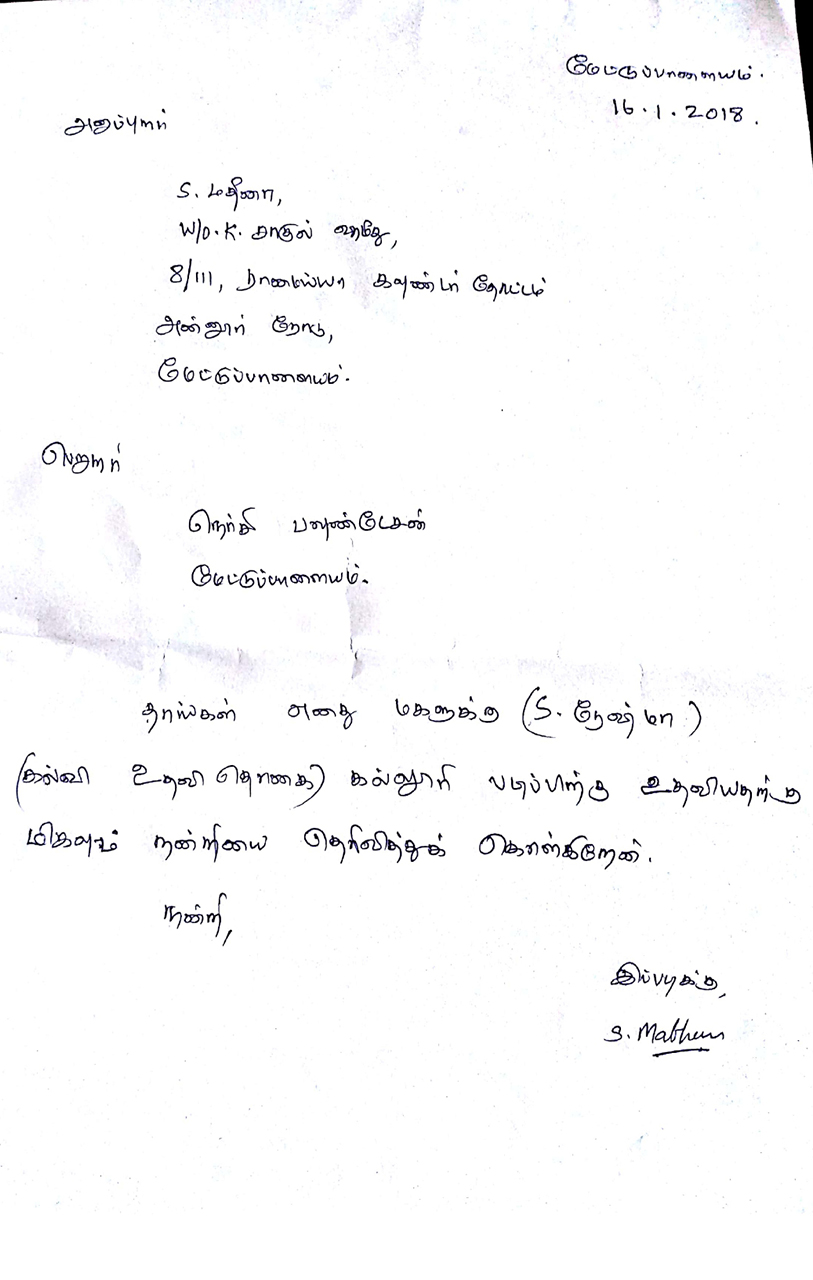 மேட்டுப்பாளையம்.
16.1.2018.
அனுப்புநர்
S. மதீனா,
W/o. K. சாகுல் ஹமீது,
8/111, ராமைய்யா கவுண்டர் தோட்டம்
அன்னூர் ரோடு,
மேட்டுப்பாளையம்.
பெறுநர்
நெர்சி பவுண்டேசன்
மேட்டுப்பாளையம்.
தாங்கள் எனது மகளுக்கு (S. ரேஷ்மா)
(கல்வி உதவி தொகை) கல்லூரி படிப்பிற்கு உதவியதற்கு
மிகவும் நன்றியை தெரிவித்துக் கொள்கிறேன்.
நன்றி,
இப்படிக்கு,
S.